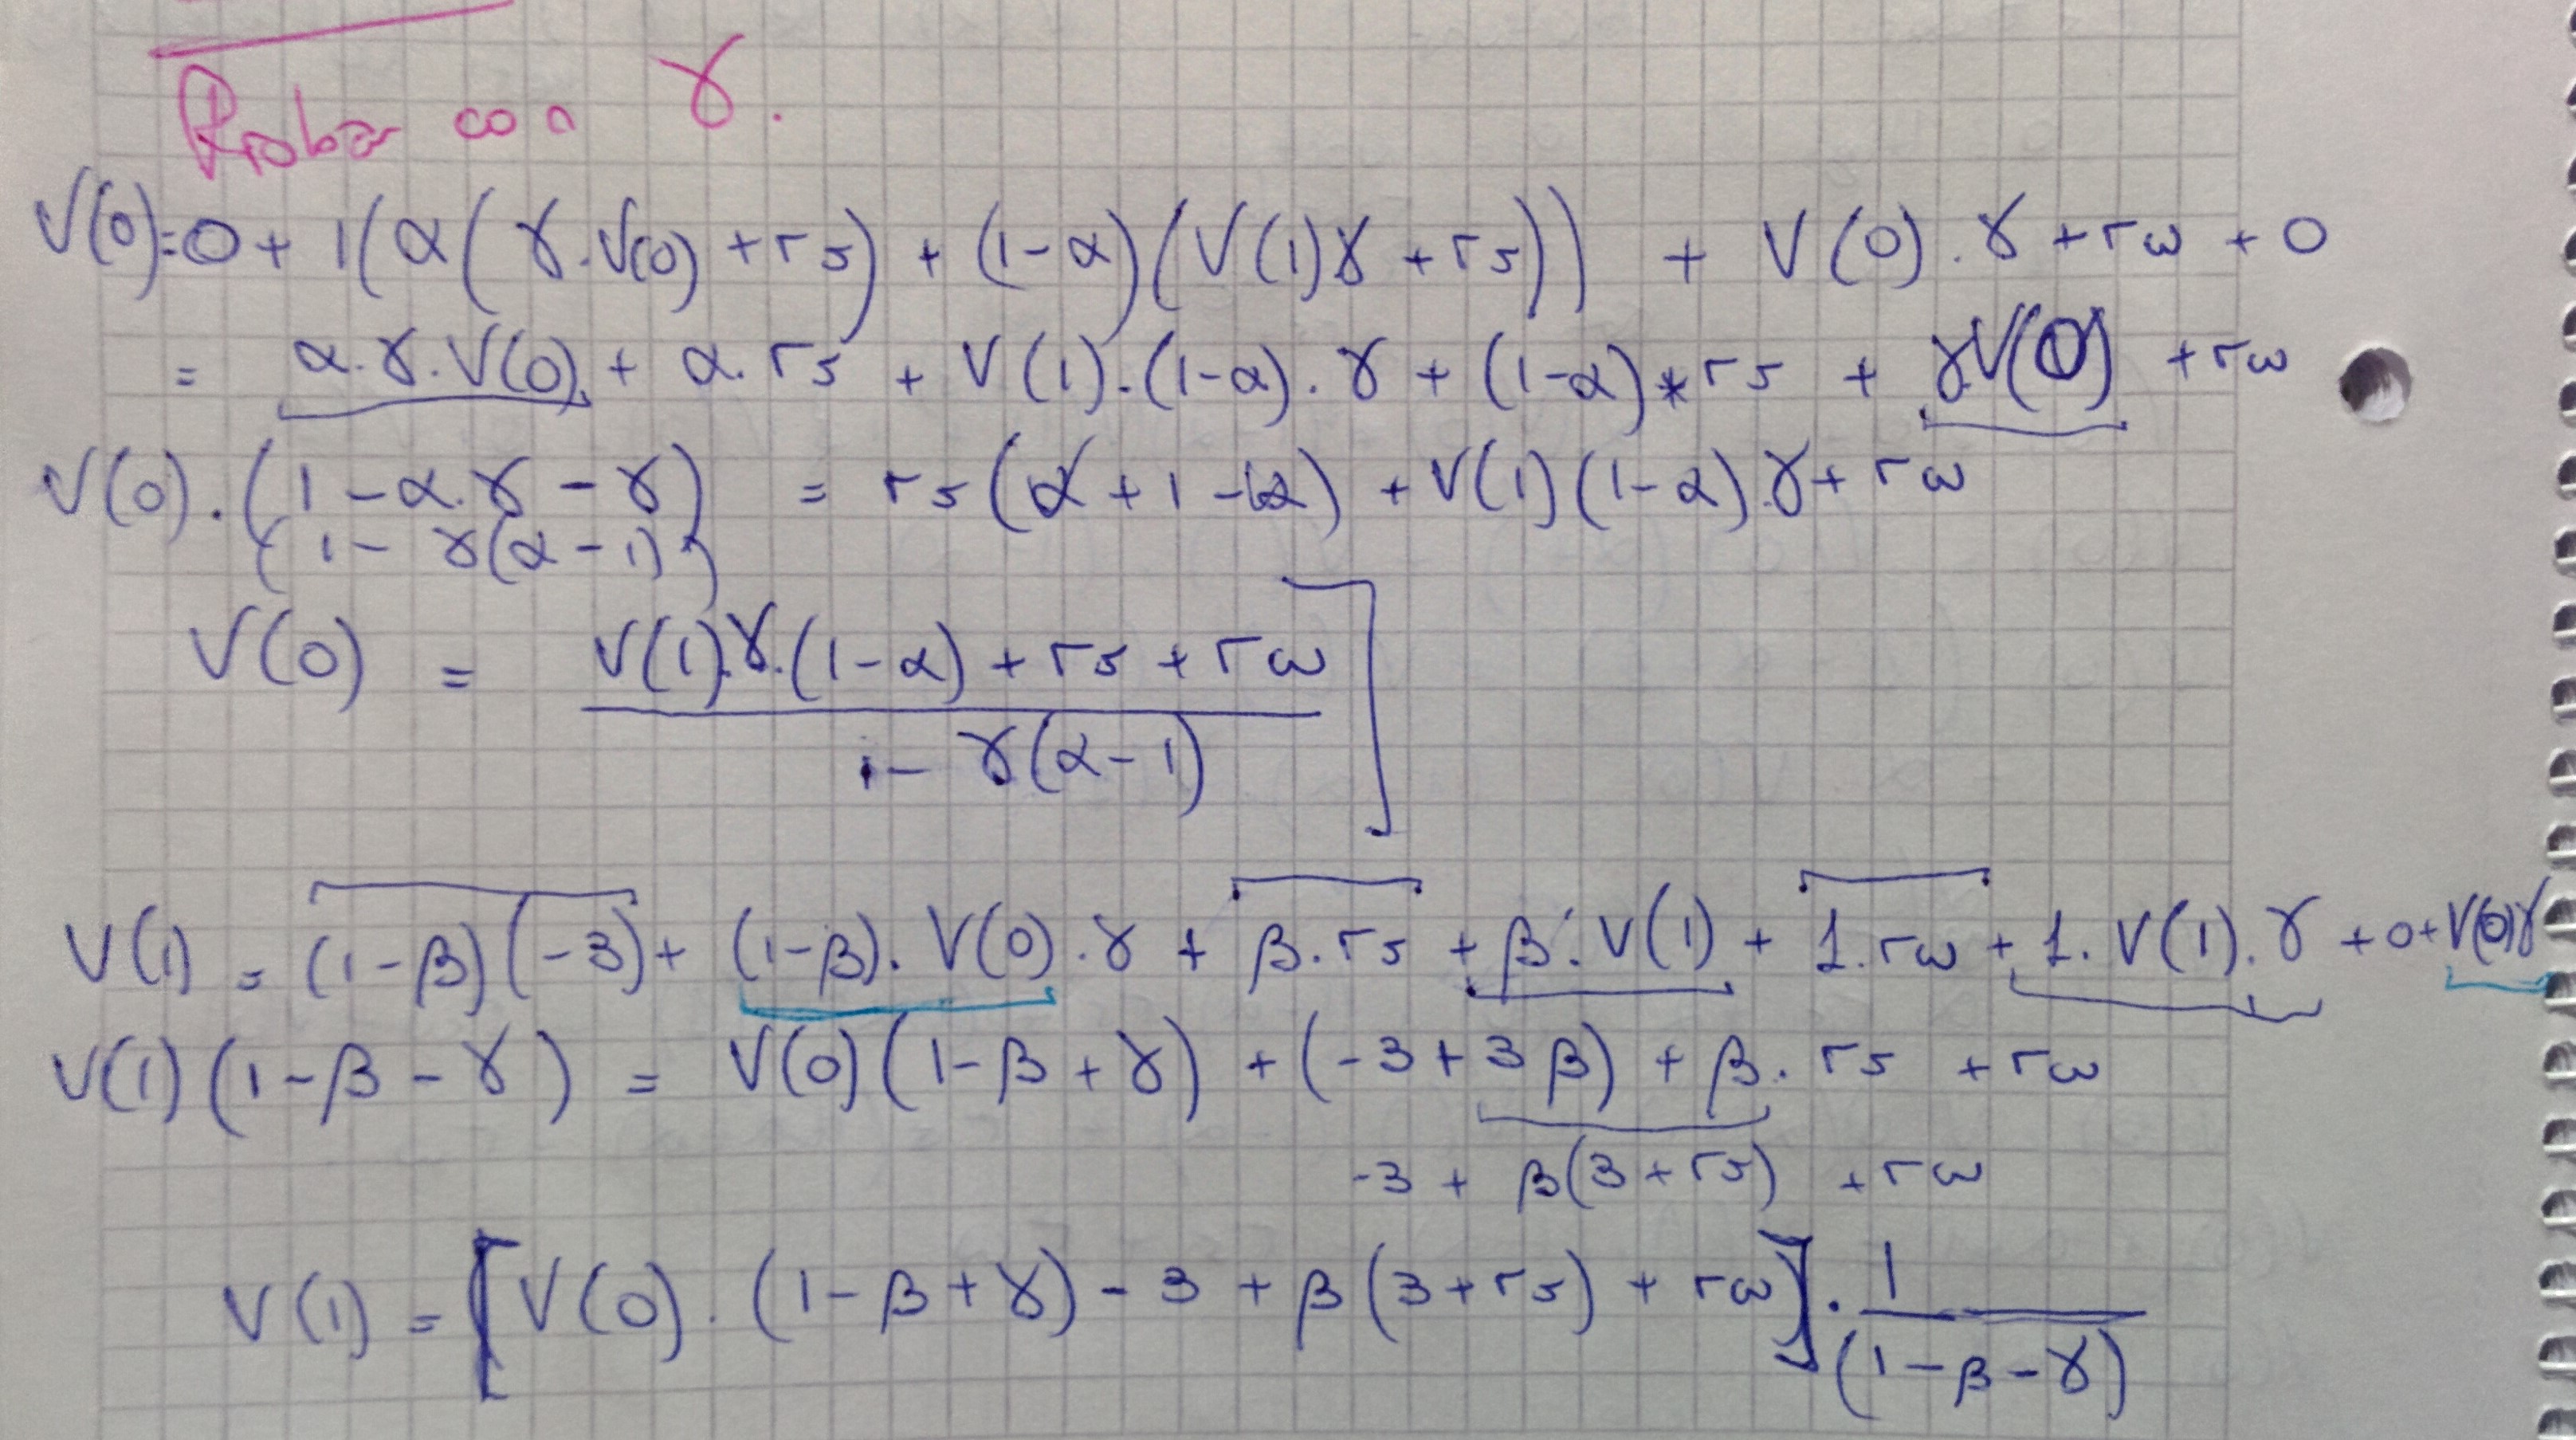 Probar con γ.
V(0)=0+1(α(γ.V(0)+rs)+(1-α)(V(1)γ+rs))+V(0).γ+rω+0
= α.γ.V(0)+α.rs+V(1).(1-α).γ+(1-α)*rs+γV(0)+rω
V(0).(1-α.γ-γ) = rs(α+1-α)+V(1)(1-α).γ+rω
(1-γ(α-1))
V(0) = V(1).γ.(1-α)+rs+rω
1-γ(α-1)
V(1) = (1-β)(-3)+(1-β).V(0).γ+β.rs+β.V(1)+1.rω+1.V(1).γ+0+V(0)γ
V(1)(1-β-γ) = V(0)(1-β+γ)+(-3+3β)+β.rs+rω
-3+β(3+rs)+rω
V(1) = [V(0).(1-β+γ)-3+β(3+rs)+rω].1
(1-β-γ)